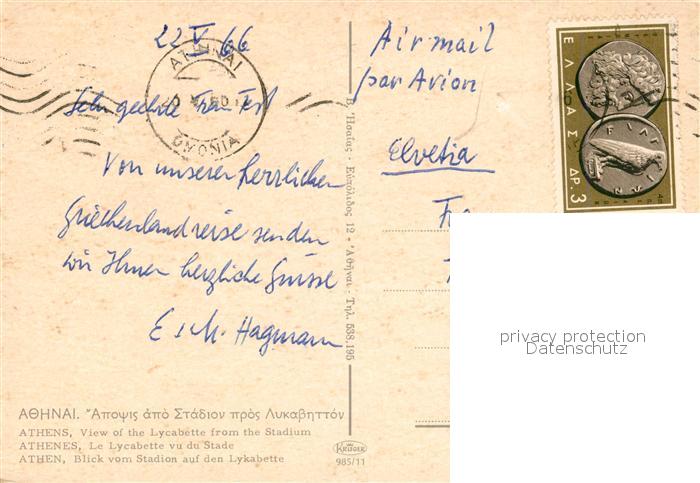 22 V 66
Sehr geehrte Frau Fest
Von unserer herrlichen
Griechenlandreise senden
wir Ihnen herzliche Grüsse
E. u. M. Hagmann
ΑΘΗΝΑΙ
ΟΜΟΝΙΑ
Airmail
par Avion
Elvetia
Fr
ΕΛΛΑΣ
ΔΡ. 3
Ἀθῆναι · Τηλ. 538.195
privacy protection
Datenschutz
ΑΘΗΝΑΙ. Ἄποψις ἀπὸ Στάδιον πρὸς Λυκαβηττόν
ATHENS, View of the Lycabette from the Stadium
ATHENES, Le Lycabette vu du Stade
ATHEN, Blick vom Stadion auf den Lykabette
KRÜGER
985/11